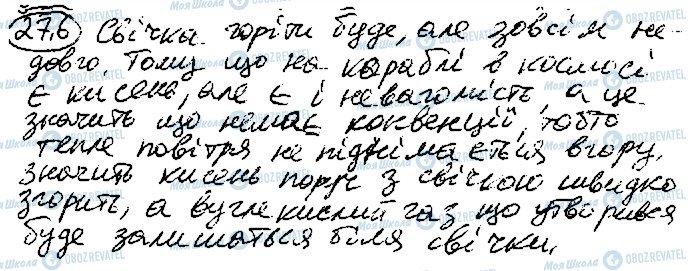 27.6 Свічка горіти буде, але зовсім не-
довго. Тому що на кораблі в космосі
є кисень, але є і невагомість, а це
значить що немає конвенції, тобто
тепле повітря не піднімається вгору,
значить кисень поруч з свічкою швидко
згорить, а вуглекислий газ що утворився
буде залишаться біля свічки.